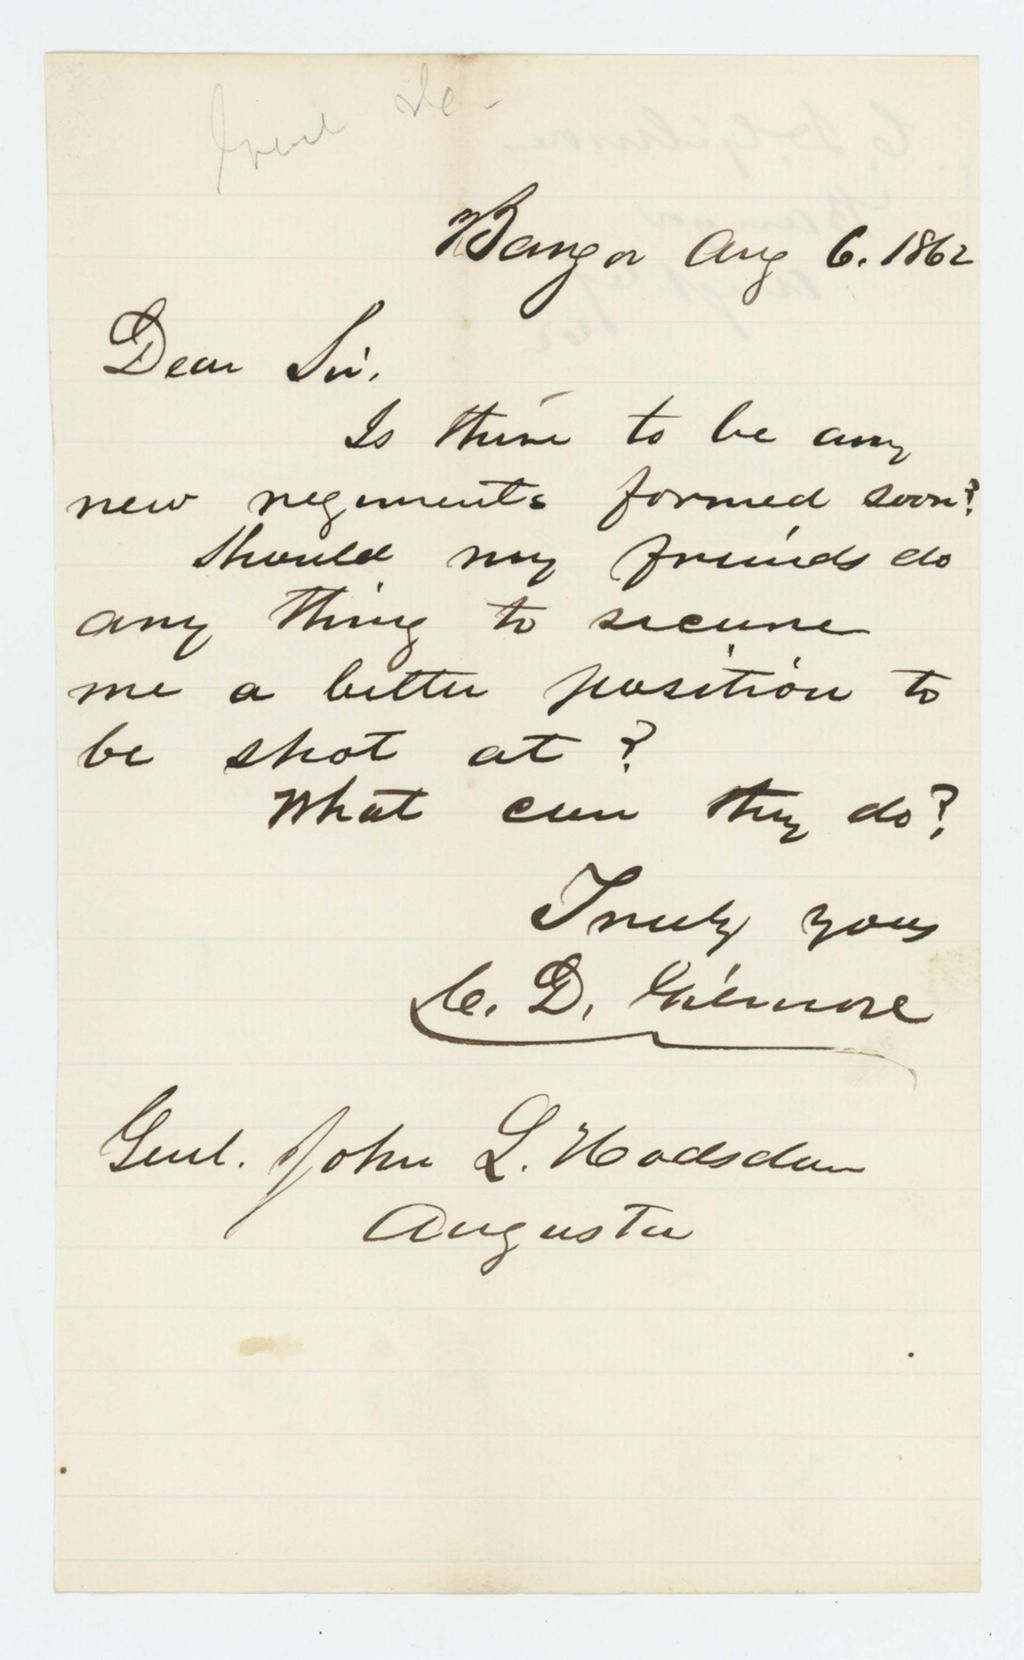 Bangor Aug 6. 1862
Dear Sir.
Is there to be any
new regiments formed soon?
Should my friends do
any thing to secure
me a better position to
be shot at?
What can they do?
Truly yours
C. D. Gilmore
Genl. John L. Hodsdon
Augusta